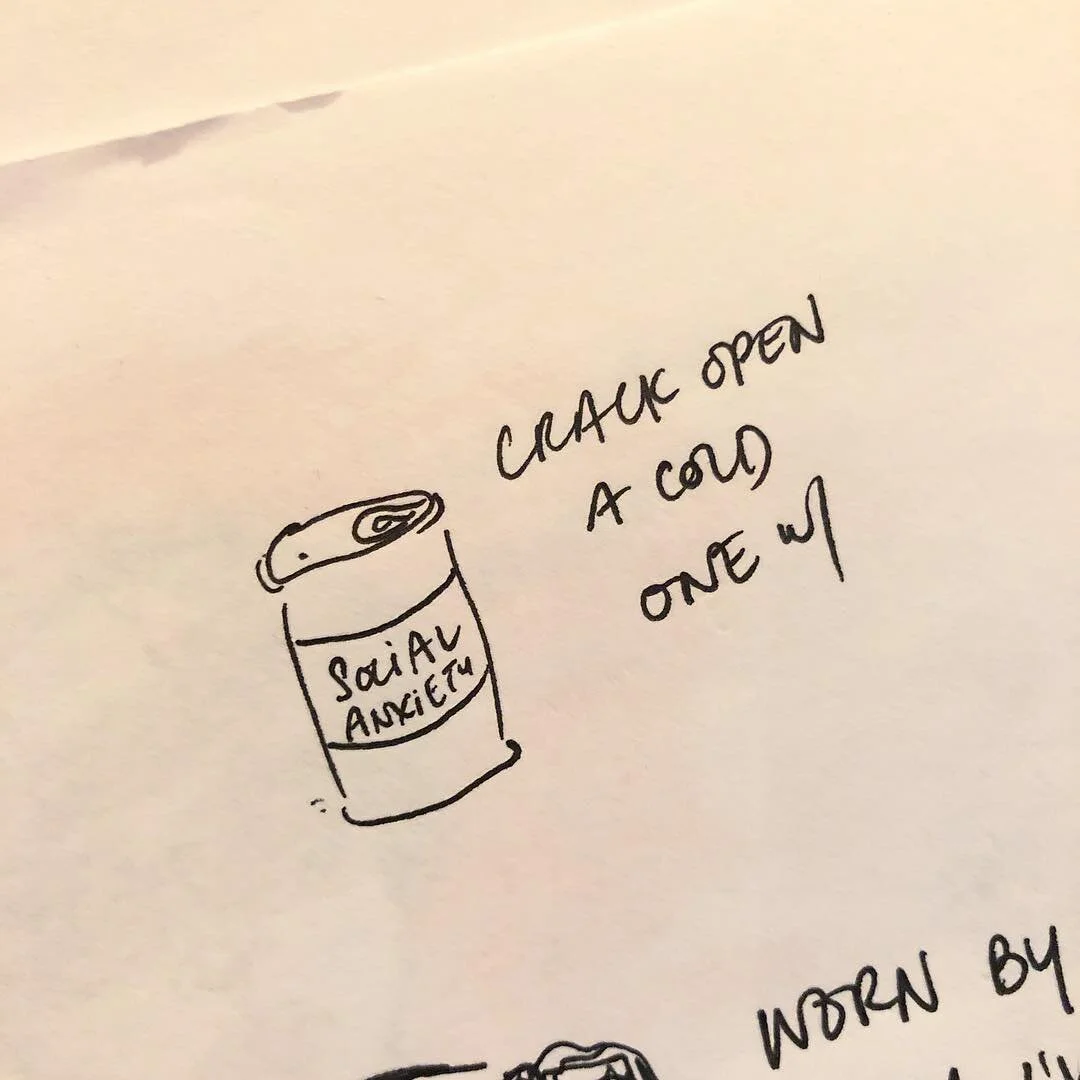 CRACK OPEN
A COLD
ONE w/
SOCiAL
ANXiETY
WORN BY